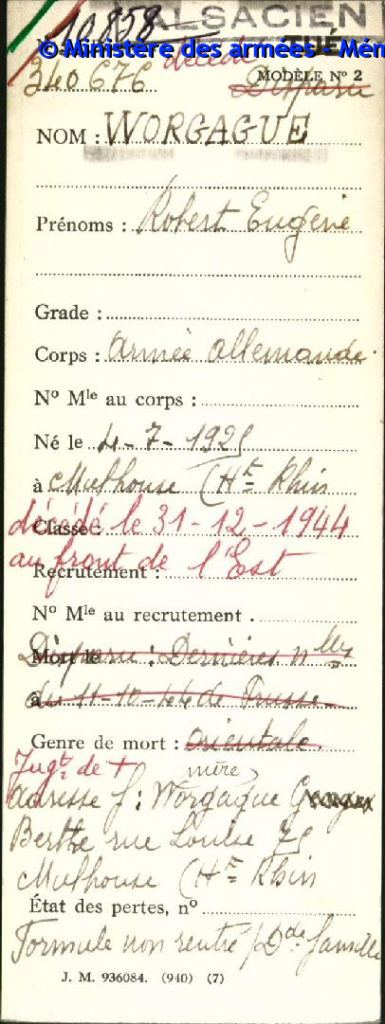 10.858 ALSACIEN
© Ministère des armées - Mém
TUÉ
décédé
340 676 MODÈLE Nº 2
Disparu
NOM : WORGAGUE
Prénoms : Robert Eugène
Grade :
Corps : armée allemande
Nº Mle au corps :
Né le 4-7-1925
à Mulhouse (Ht Rhin
Classe :
décédé le 31-12-1944
au front de l'Est
Recrutement :
Nº Mle au recrutement .
Mort le
Disparu : Dernières nlles
à
du 11-10-44 de Prusse
Genre de mort : orientale
Jugt de +
mère
adresse f : Worgague
Berthe rue Louise 75
Mulhouse (Ht Rhin
État des pertes, nº
Formule non rentré / Dde famille
J. M. 936084. (940) (7)